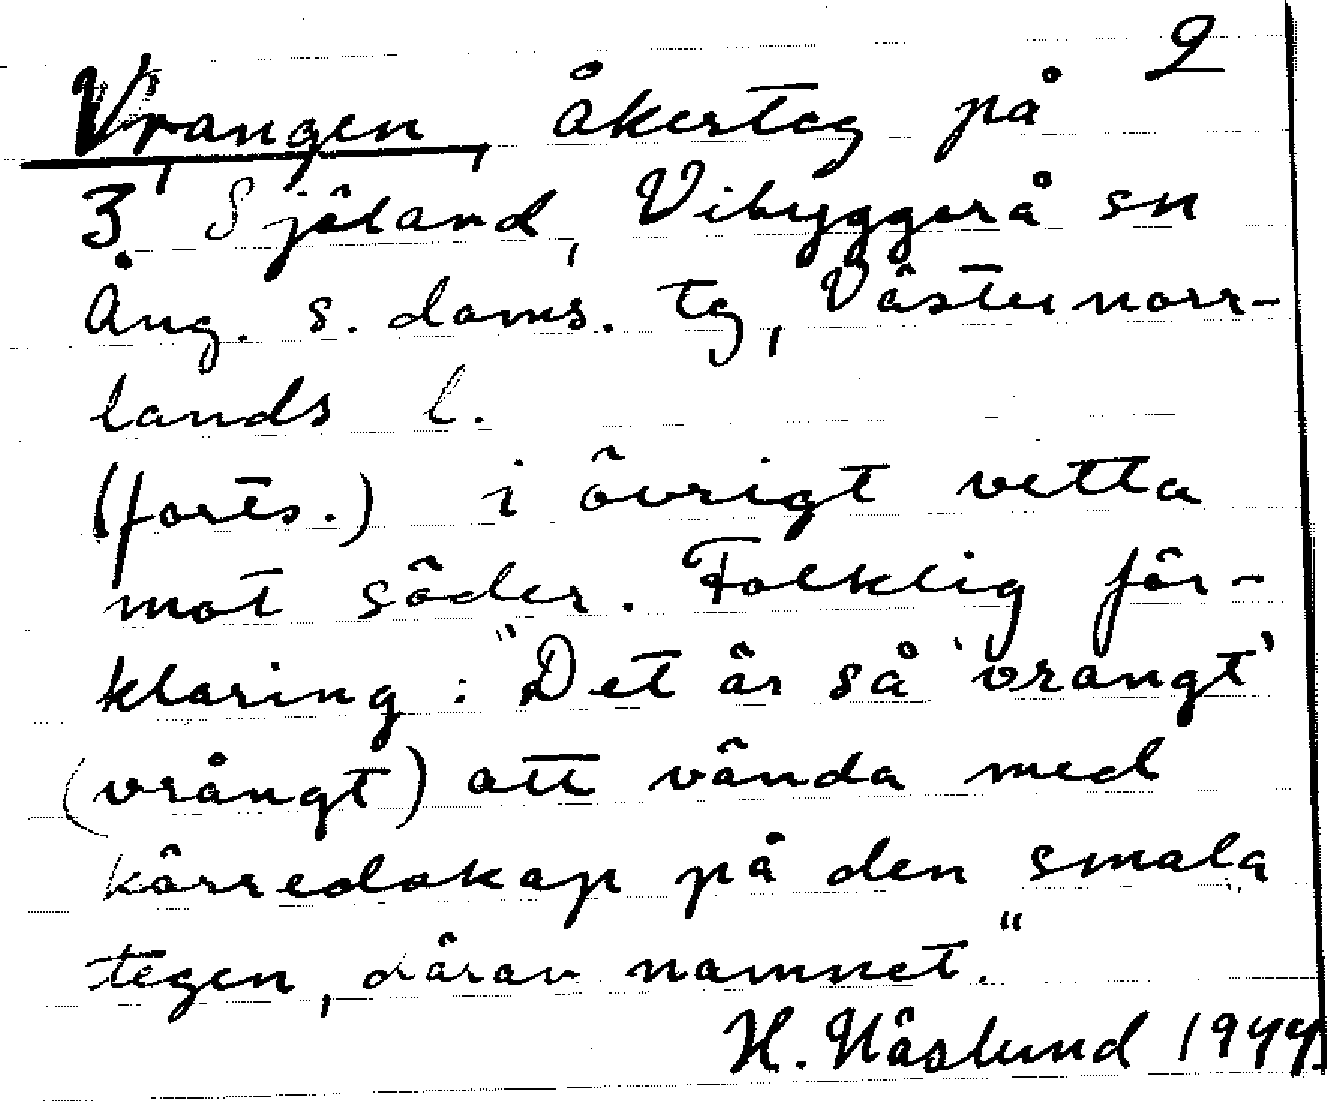 2
Vrangen, åkerteg på
3, Själand, Vibyggerå sn
Ång. s. doms. tg, Västernorr-
lands l.
(forts.) i övrigt vetta
mot söder. Folklig för-
klaring: "Det är så 'vrangt'
(vrångt) att vända med
körredskap på den smala
tegen, därav namnet."
H. Näslund 1944.